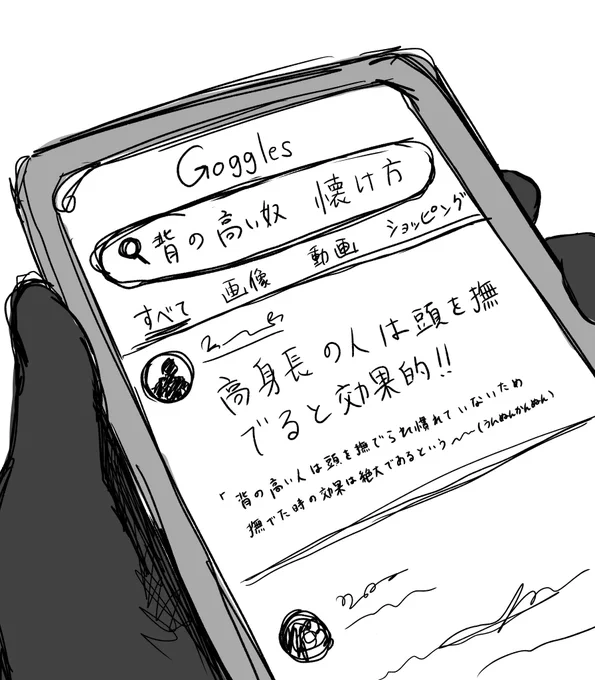 Goggles
背の高い奴 懐け方
すべて 画像 動画 ショッピング
高身長の人は頭を撫
でると効果的!!
「背の高い人は頭を撫でられ慣れていないため
撫でた時の効果は絶大であるという〜〜(うんぬんかんぬん)